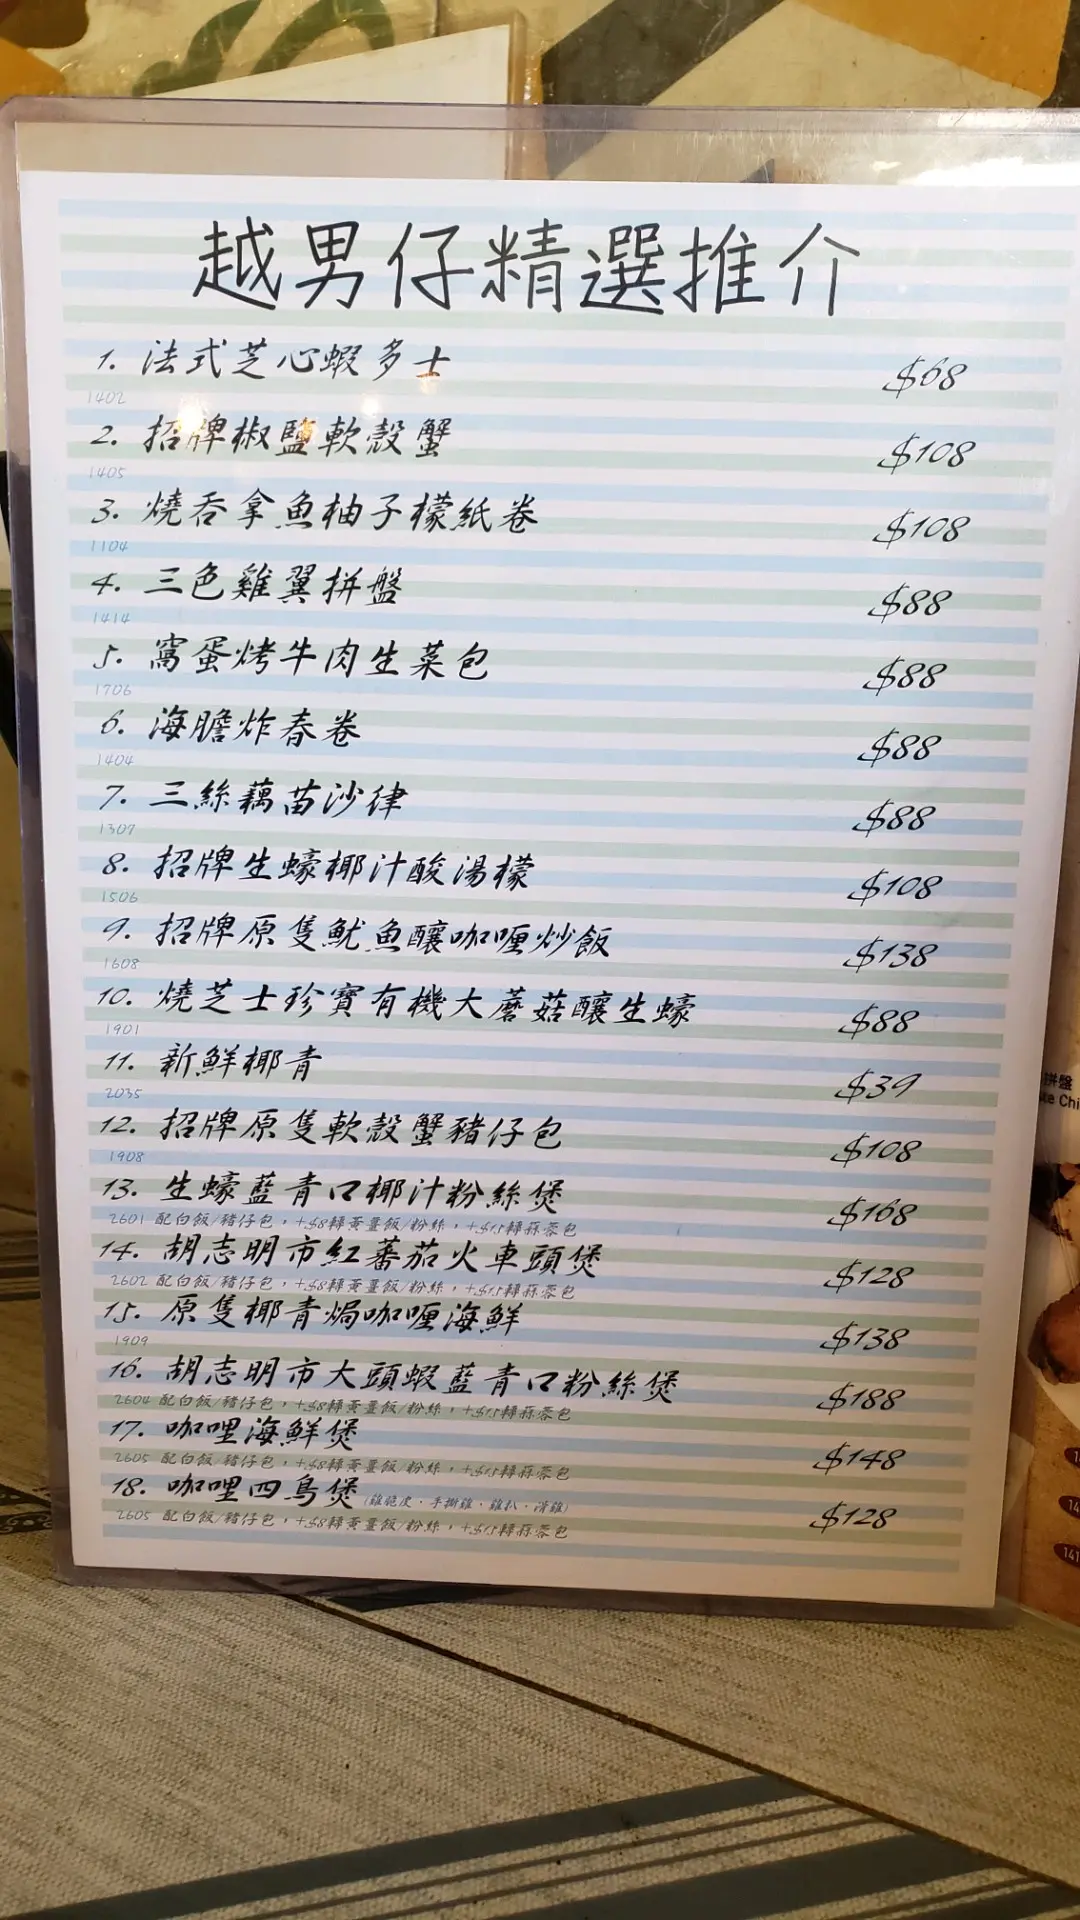 越男仔精選推介
1. 法式芝心蝦多士 $68
1402
2. 招牌椒鹽軟殼蟹 $108
1405
3. 燒吞拿魚柚子檬紙卷 $108
1104
4. 三色雞翼拼盤 $88
1414
5. 窩蛋烤牛肉生菜包 $88
1706
6. 海膽炸春卷 $88
1404
7. 三絲藕苗沙律 $88
1307
8. 招牌生蠔椰汁酸湯檬 $108
1506
9. 招牌原隻魷魚釀咖喱炒飯 $138
1608
10. 燒芝士珍寶有機大蘑菇釀生蠔 $88
1901
11. 新鮮椰青 $39
2035
12. 招牌原隻軟殼蟹豬仔包 $108
1908
13. 生蠔藍青口椰汁粉絲煲 $168
2601 配白飯/豬仔包，+$8轉黃薑飯/粉絲，+$15轉蒜蓉包
14. 胡志明市紅蕃茄火車頭煲 $128
2602 配白飯/豬仔包，+$8轉黃薑飯/粉絲，+$15轉蒜蓉包
15. 原隻椰青焗咖喱海鮮 $138
1909
16. 胡志明市大頭蝦藍青口粉絲煲 $188
2604 配白飯/豬仔包，+$8轉黃薑飯/粉絲，+$15轉蒜蓉包
17. 咖哩海鮮煲 $148
2605 配白飯/豬仔包，+$8轉黃薑飯/粉絲，+$15轉蒜蓉包
18. 咖哩四鳥煲 (雞脆皮·手撕雞·雞扒·滑雞) $128
2605 配白飯/豬仔包，+$8轉黃薑飯/粉絲，+$15轉蒜蓉包
拼盤